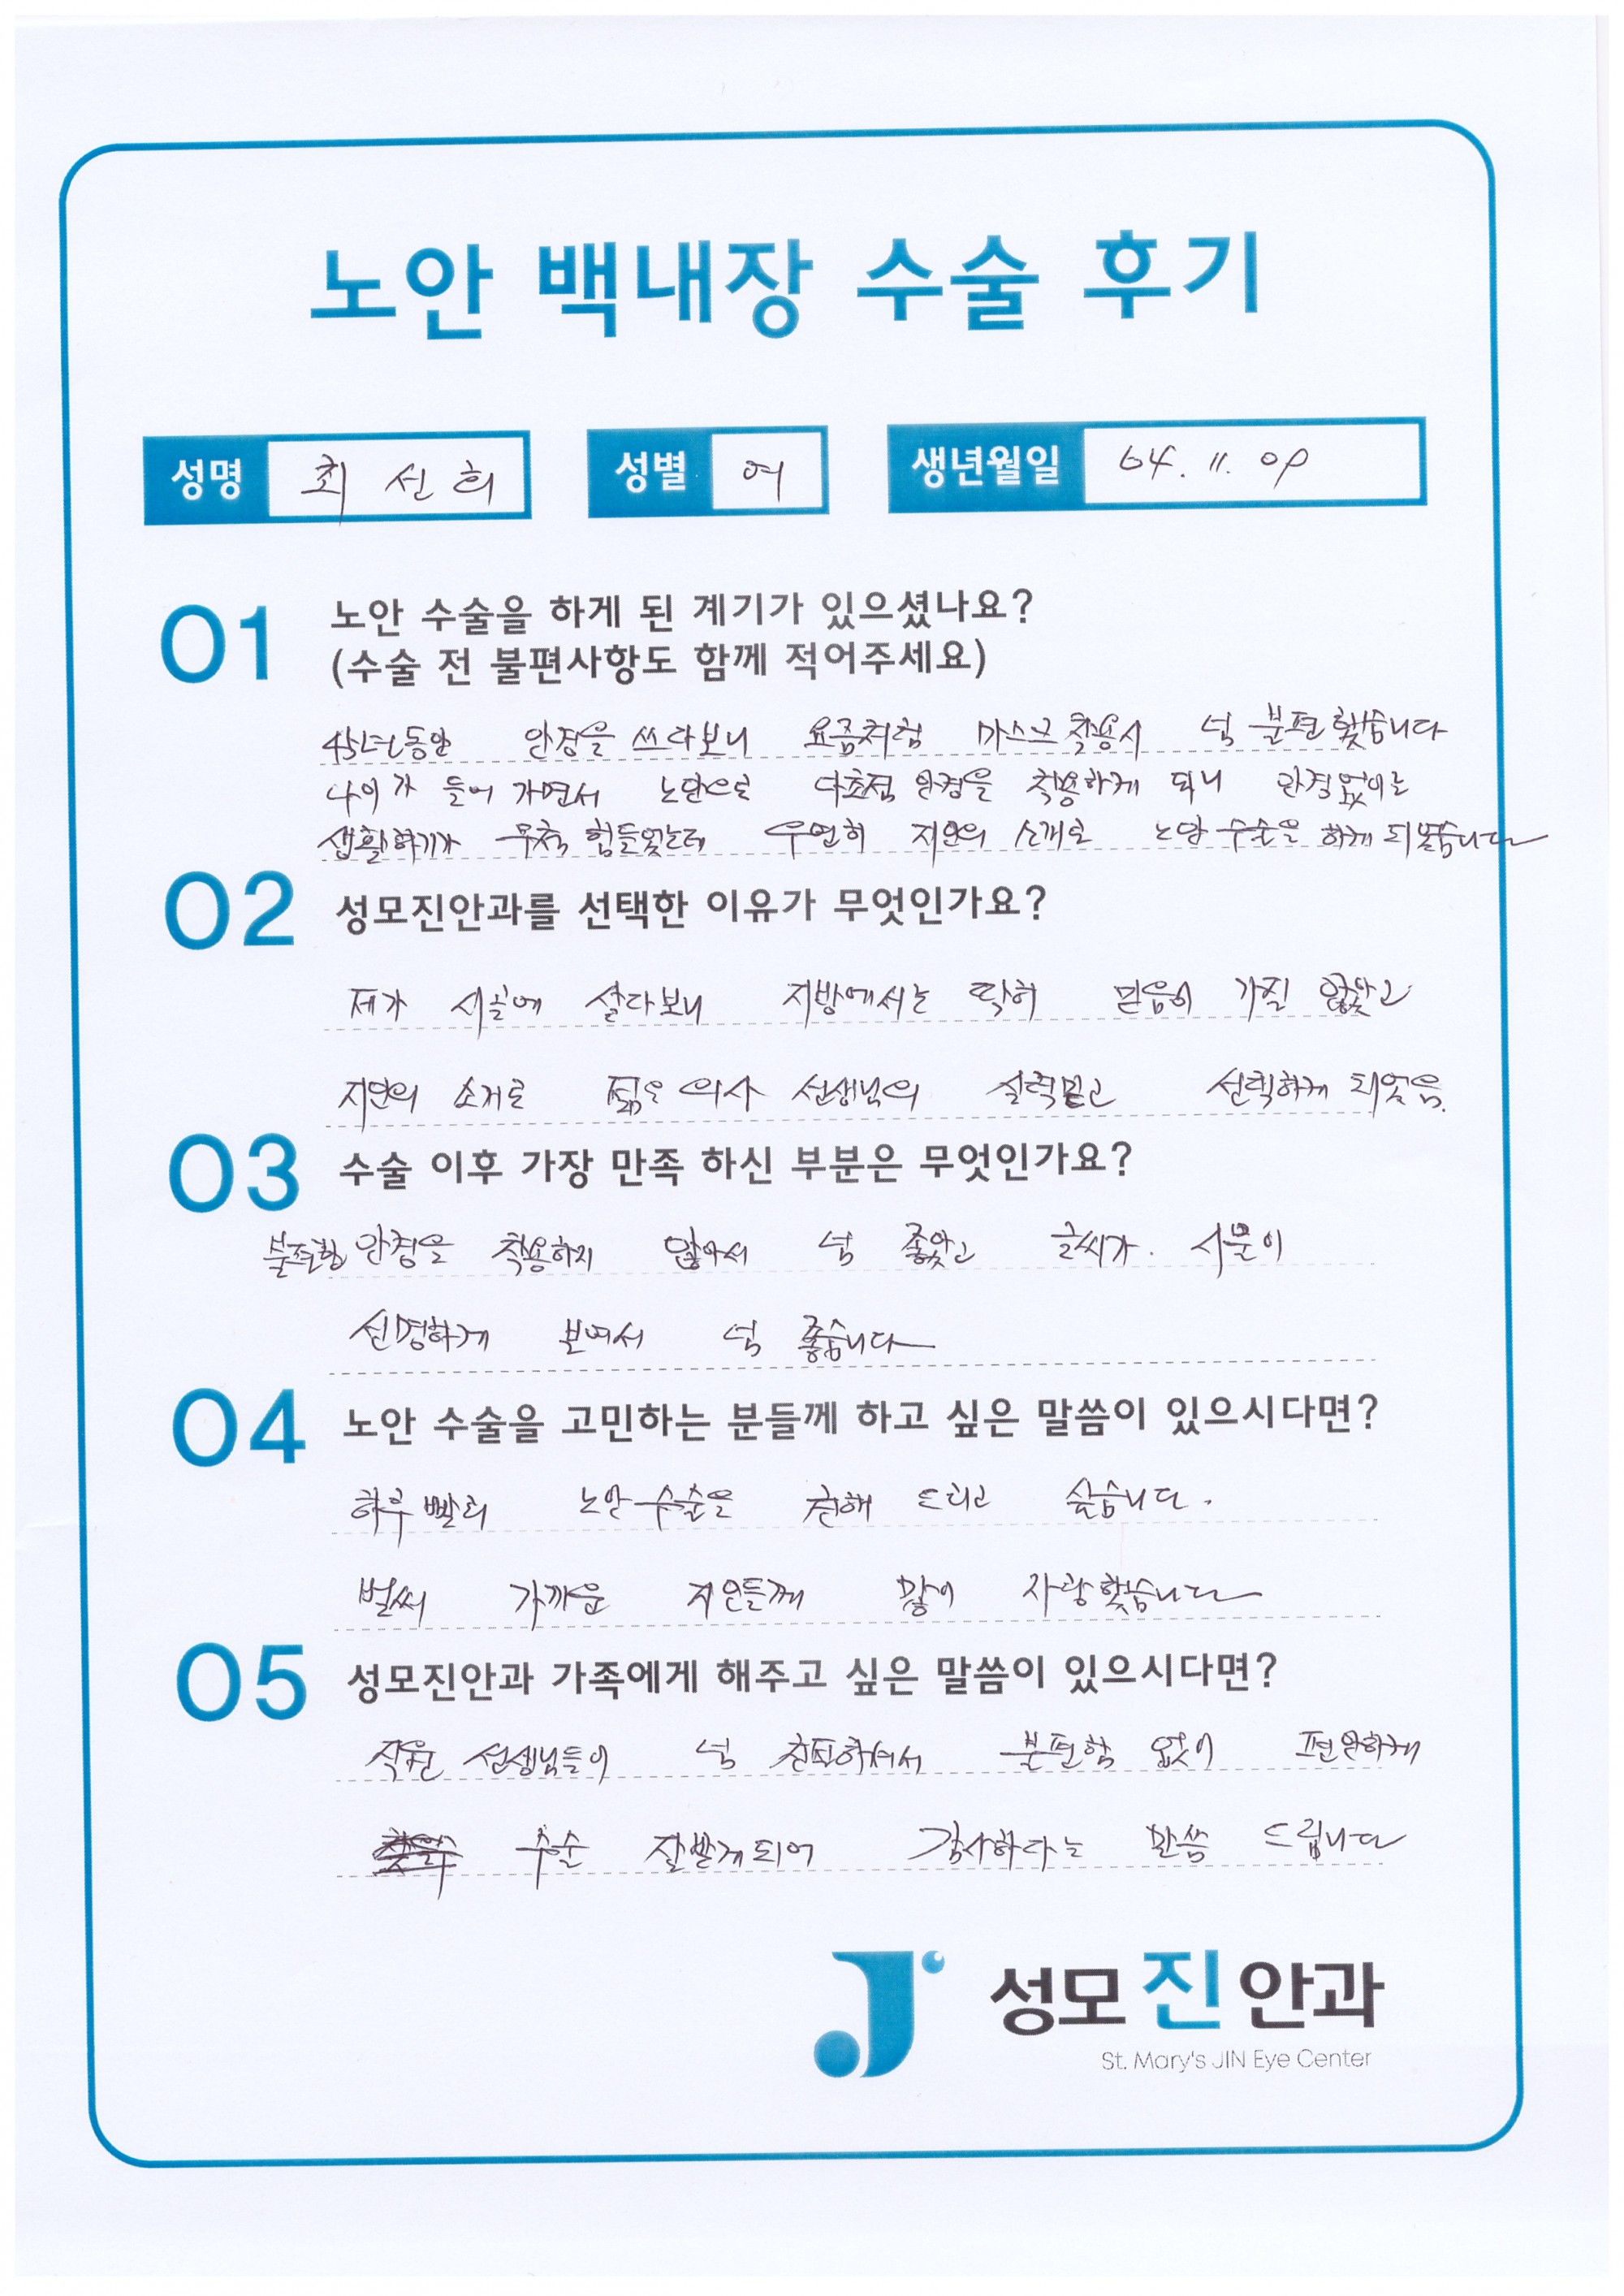 노안 백내장 수술 후기
성명 최선희 성별 여 생년월일 64. 11. 09
01 노안 수술을 하게 된 계기가 있으셨나요?
(수술 전 불편사항도 함께 적어주세요)
45년동안 안경을 쓰다보니 요즘처럼 마스크 착용시 넘 불편했습니다
나이가 들어 가면서 노안으로 다초점 안경을 착용하게 되니 안경없이는
생활하기가 무척 힘들었는데 우연히 지인의 소개로 노안 수술을 하게 되었습니다
02 성모진안과를 선택한 이유가 무엇인가요?
제가 시골에 살다보니 지방에서는 딱히 믿음이 가질 않았고
지인의 소개로 젊은 의사 선생님의 실력믿고 선택하게 되었음.
03 수술 이후 가장 만족 하신 부분은 무엇인가요?
불편한 안경을 착용하지 않아서 넘 좋았고 글씨가. 사물이
선명하게 보여서 넘 좋습니다
04 노안 수술을 고민하는 분들께 하고 싶은 말씀이 있으시다면?
하루빨리 노안수술을 권해 드리고 싶습니다.
벌써 가까운 지인들께 많이 자랑했습니다
05 성모진안과 가족에게 해주고 싶은 말씀이 있으시다면?
직원 선생님들이 넘 친절하셔서 불편함 없이 편안하게
수술 잘받게되어 감사하다는 말씀 드립니다
성모진안과
St. Mary's JIN Eye Center